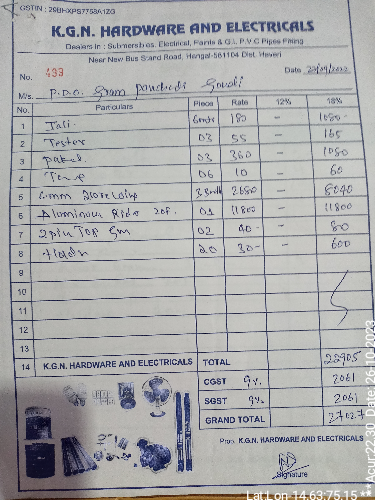 GSTIN : 29BHXPS7758A1ZG
K.G.N. HARDWARE AND ELECTRICALS
Dealers in : Submersibles, Electrical, Paints & G.I. P.V.C Pipes Fitting
Near New Bus Stand Road, Hangal-581104 Dist. Haveri
No. 433 Date
M/s. P.D.O. Gram
No. Particulars Piece Rate 12% 18%
1 Jali 6mts 180 - 1080-
2 Tester 03 55 - 165
3 03 360 - 1080
4 Tape 06 10 - 60
5 2680 - 8040
6 01 11800 - 11800
7 2pin Top 02 40- - 80
8 20 30- - 600
9
10
11
12
13
14 K.G.N. HARDWARE AND ELECTRICALS TOTAL 22905
CGST 9%. 2061
SGST 9%. 2061
GRAND TOTAL 27027
Prop. K.G.N. HARDWARE AND ELECTRICALS
Signature
Lat,Lon:14.63;75.15 ** Acu:27.30 Date:26-10-2023